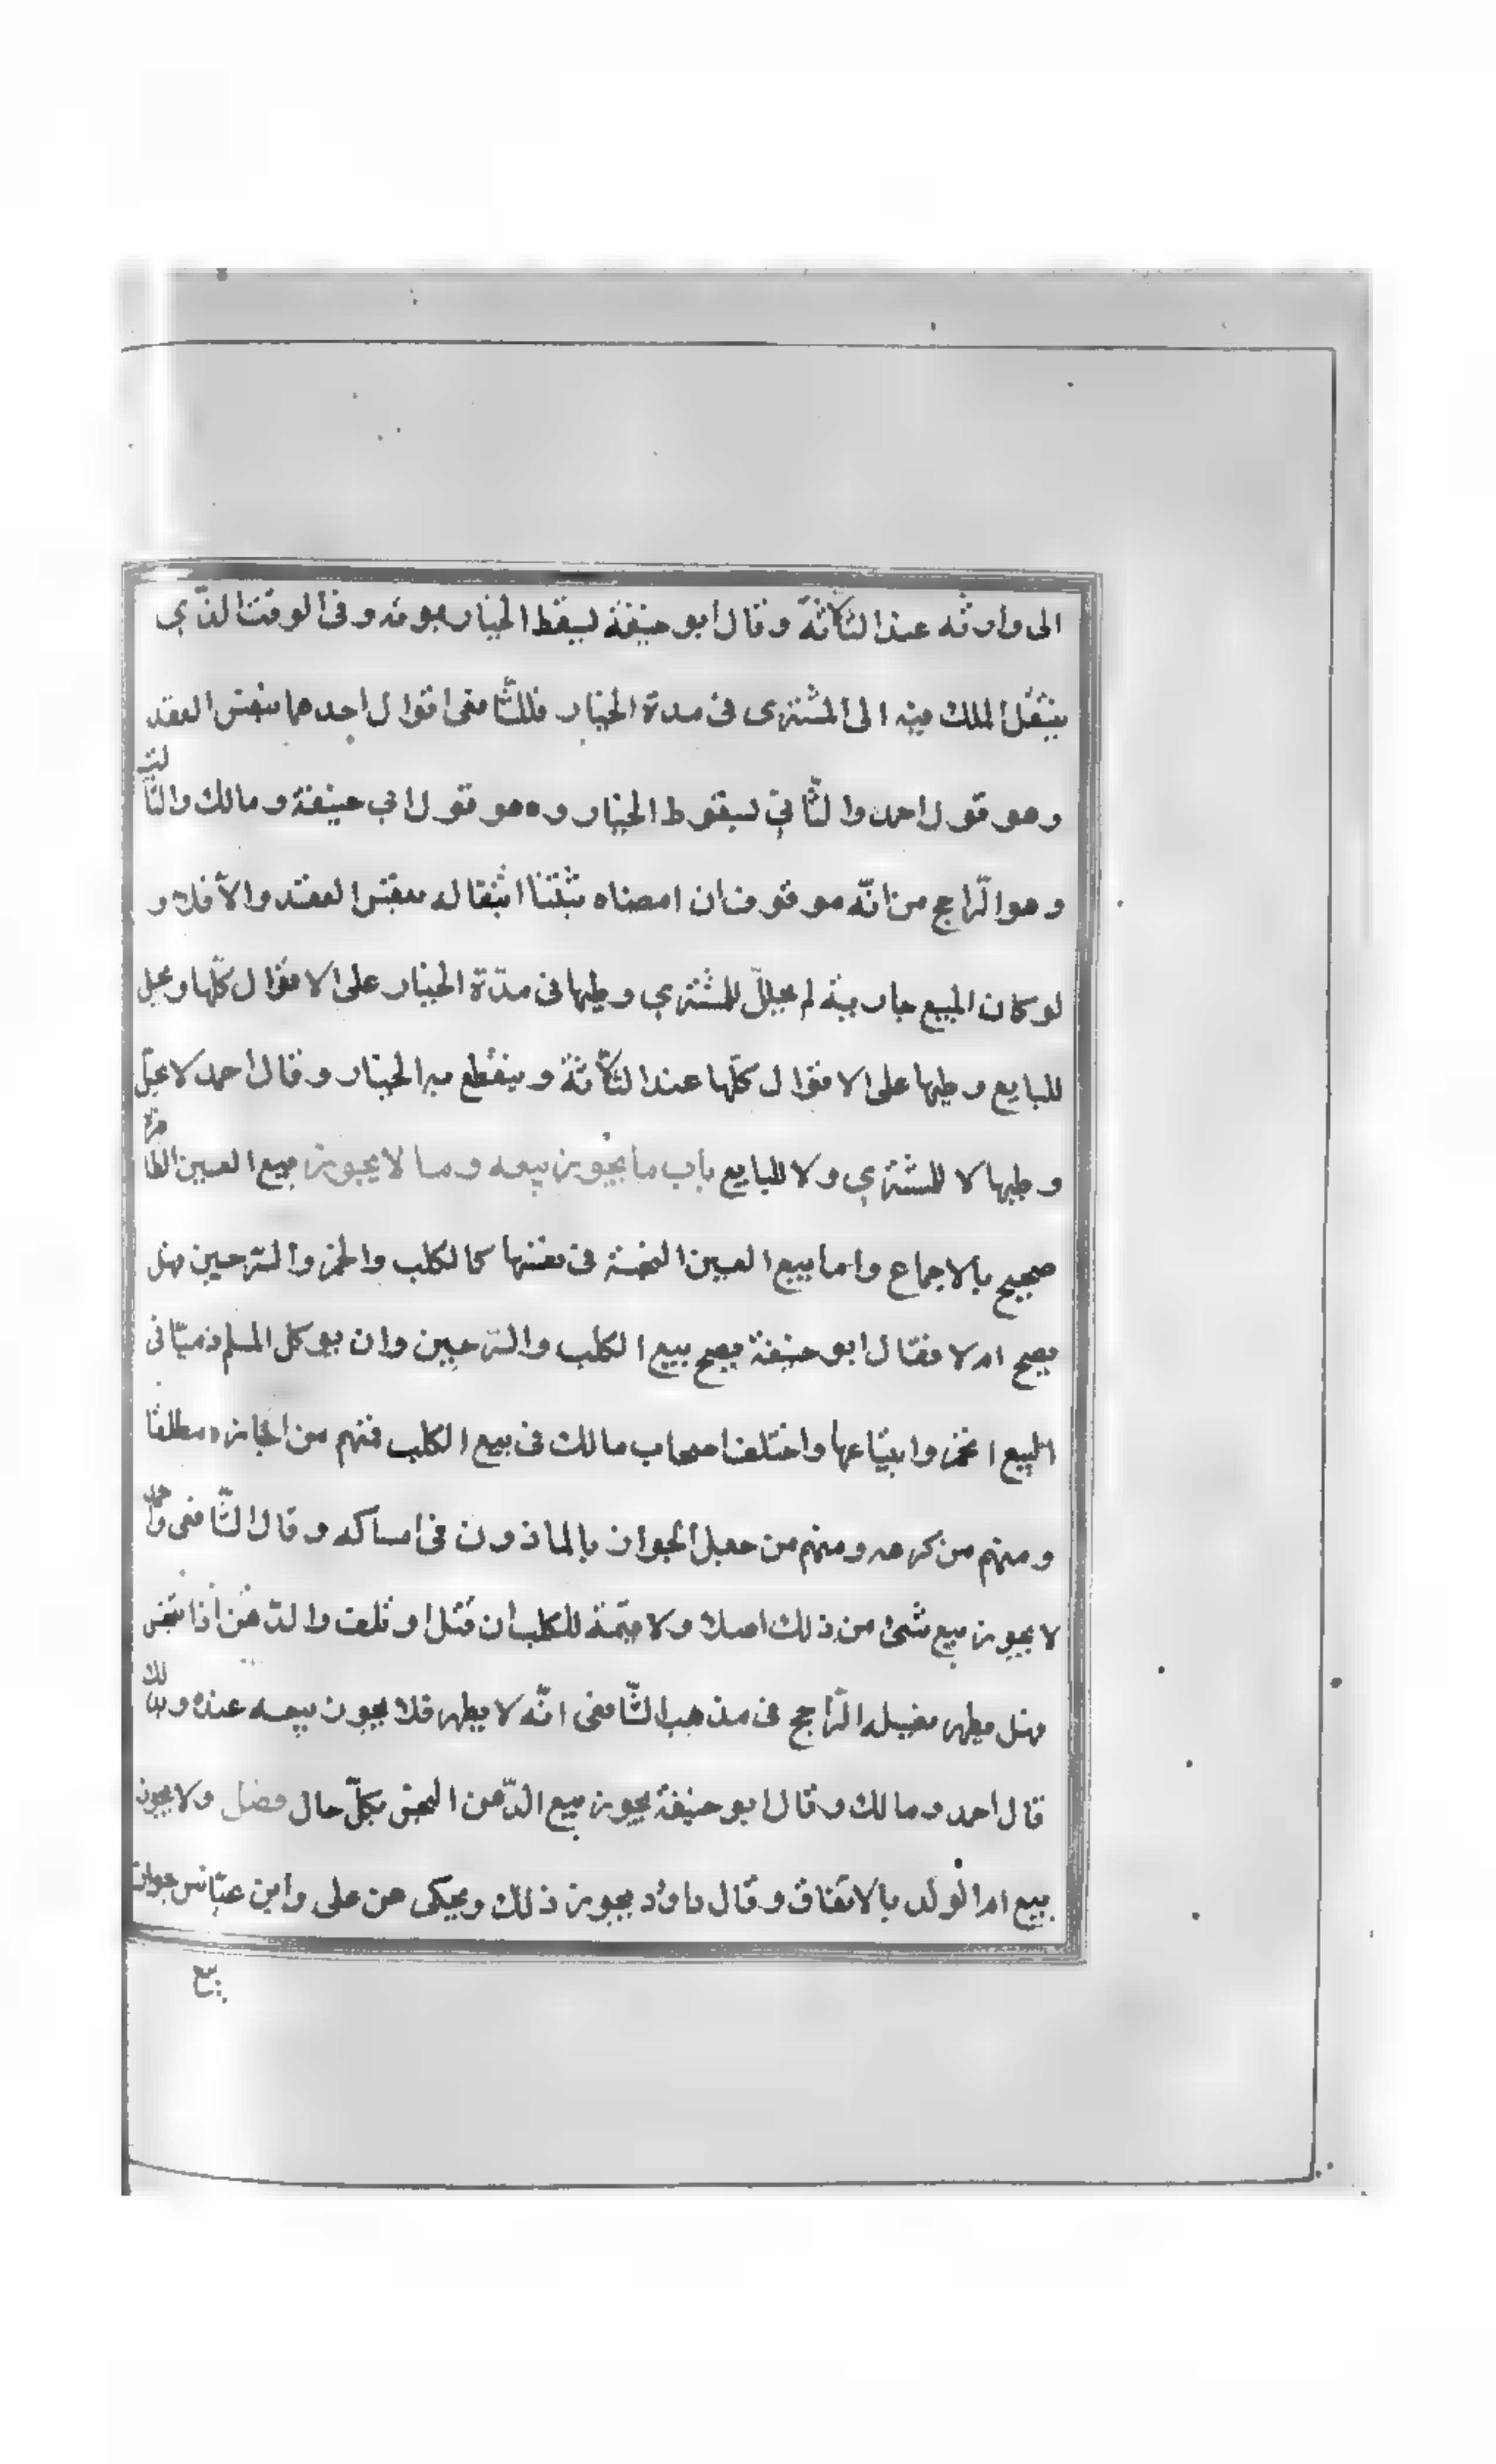 الى وارثه عند الثلاثة وقال ابو حنيفة يسقط الخيار بموته وفى الوقت الذّي
ينتقل الملك فيه الى المشترى فى مدة الخيار فللشّافعى اقوال احدها بنفس العقد
وهو قول احمد والثّاني بسقوط الخيار وهو قول ابى حنيفة ومالك والثّالث
وهو الرّاجح من انّه موقوف ان امضناه تبتنا انتقاله بنفس العقد والاّ فلا و
لو كان المبيع جارية لم يحلّ للمشتري وطيها فى مدّة الخيار على الاقوال كلّها ويحل
للبايع وطيها على الاقوال كلّها عند الثلاثة وينقطع به الخيار وقال احمد لا يحلّ
وطيها لا للمشتري ولا للبايع باب ما يجوز بيعه وما لا يجوز بيع العين الطاهرة
صحيح بالاجماع واما بيع العين النجسة فى نفسها كالكلب والخمز والسّرجين هل
يصح ام لا فقال ابو حنيفة يصح بيع الكلب والسّرجين وان يوكل المسلم ذميّا فى
البيع الخمز وابتياعها واختلف اصحاب مالك فى بيع الكلب فمنهم من اجازه مطلقا
ومنهم من كرهه ومنهم من جعل الجواز بالماذون فى امساكه وقال الشّافعى واحمد
لا يجوز بيع شئ من ذلك اصلا ولا قيمة للكلب ان قتل او تلف والدّهن اذا تنجس
هل يطهر بغسله الرّاجح فى مذهب الشّافعى انّه لا يطهر فلا يجوز بيعه عنده وبذلك
قال احمد ومالك وقال ابو حنيفة يجوز بيع الدّهن النجس بكلّ حال فصل ولا يجوز
بيع ام الولد بالاتفاق وقال داود يجوز ذلك ويحكى عن على وابن عبّاس جواز
بيع